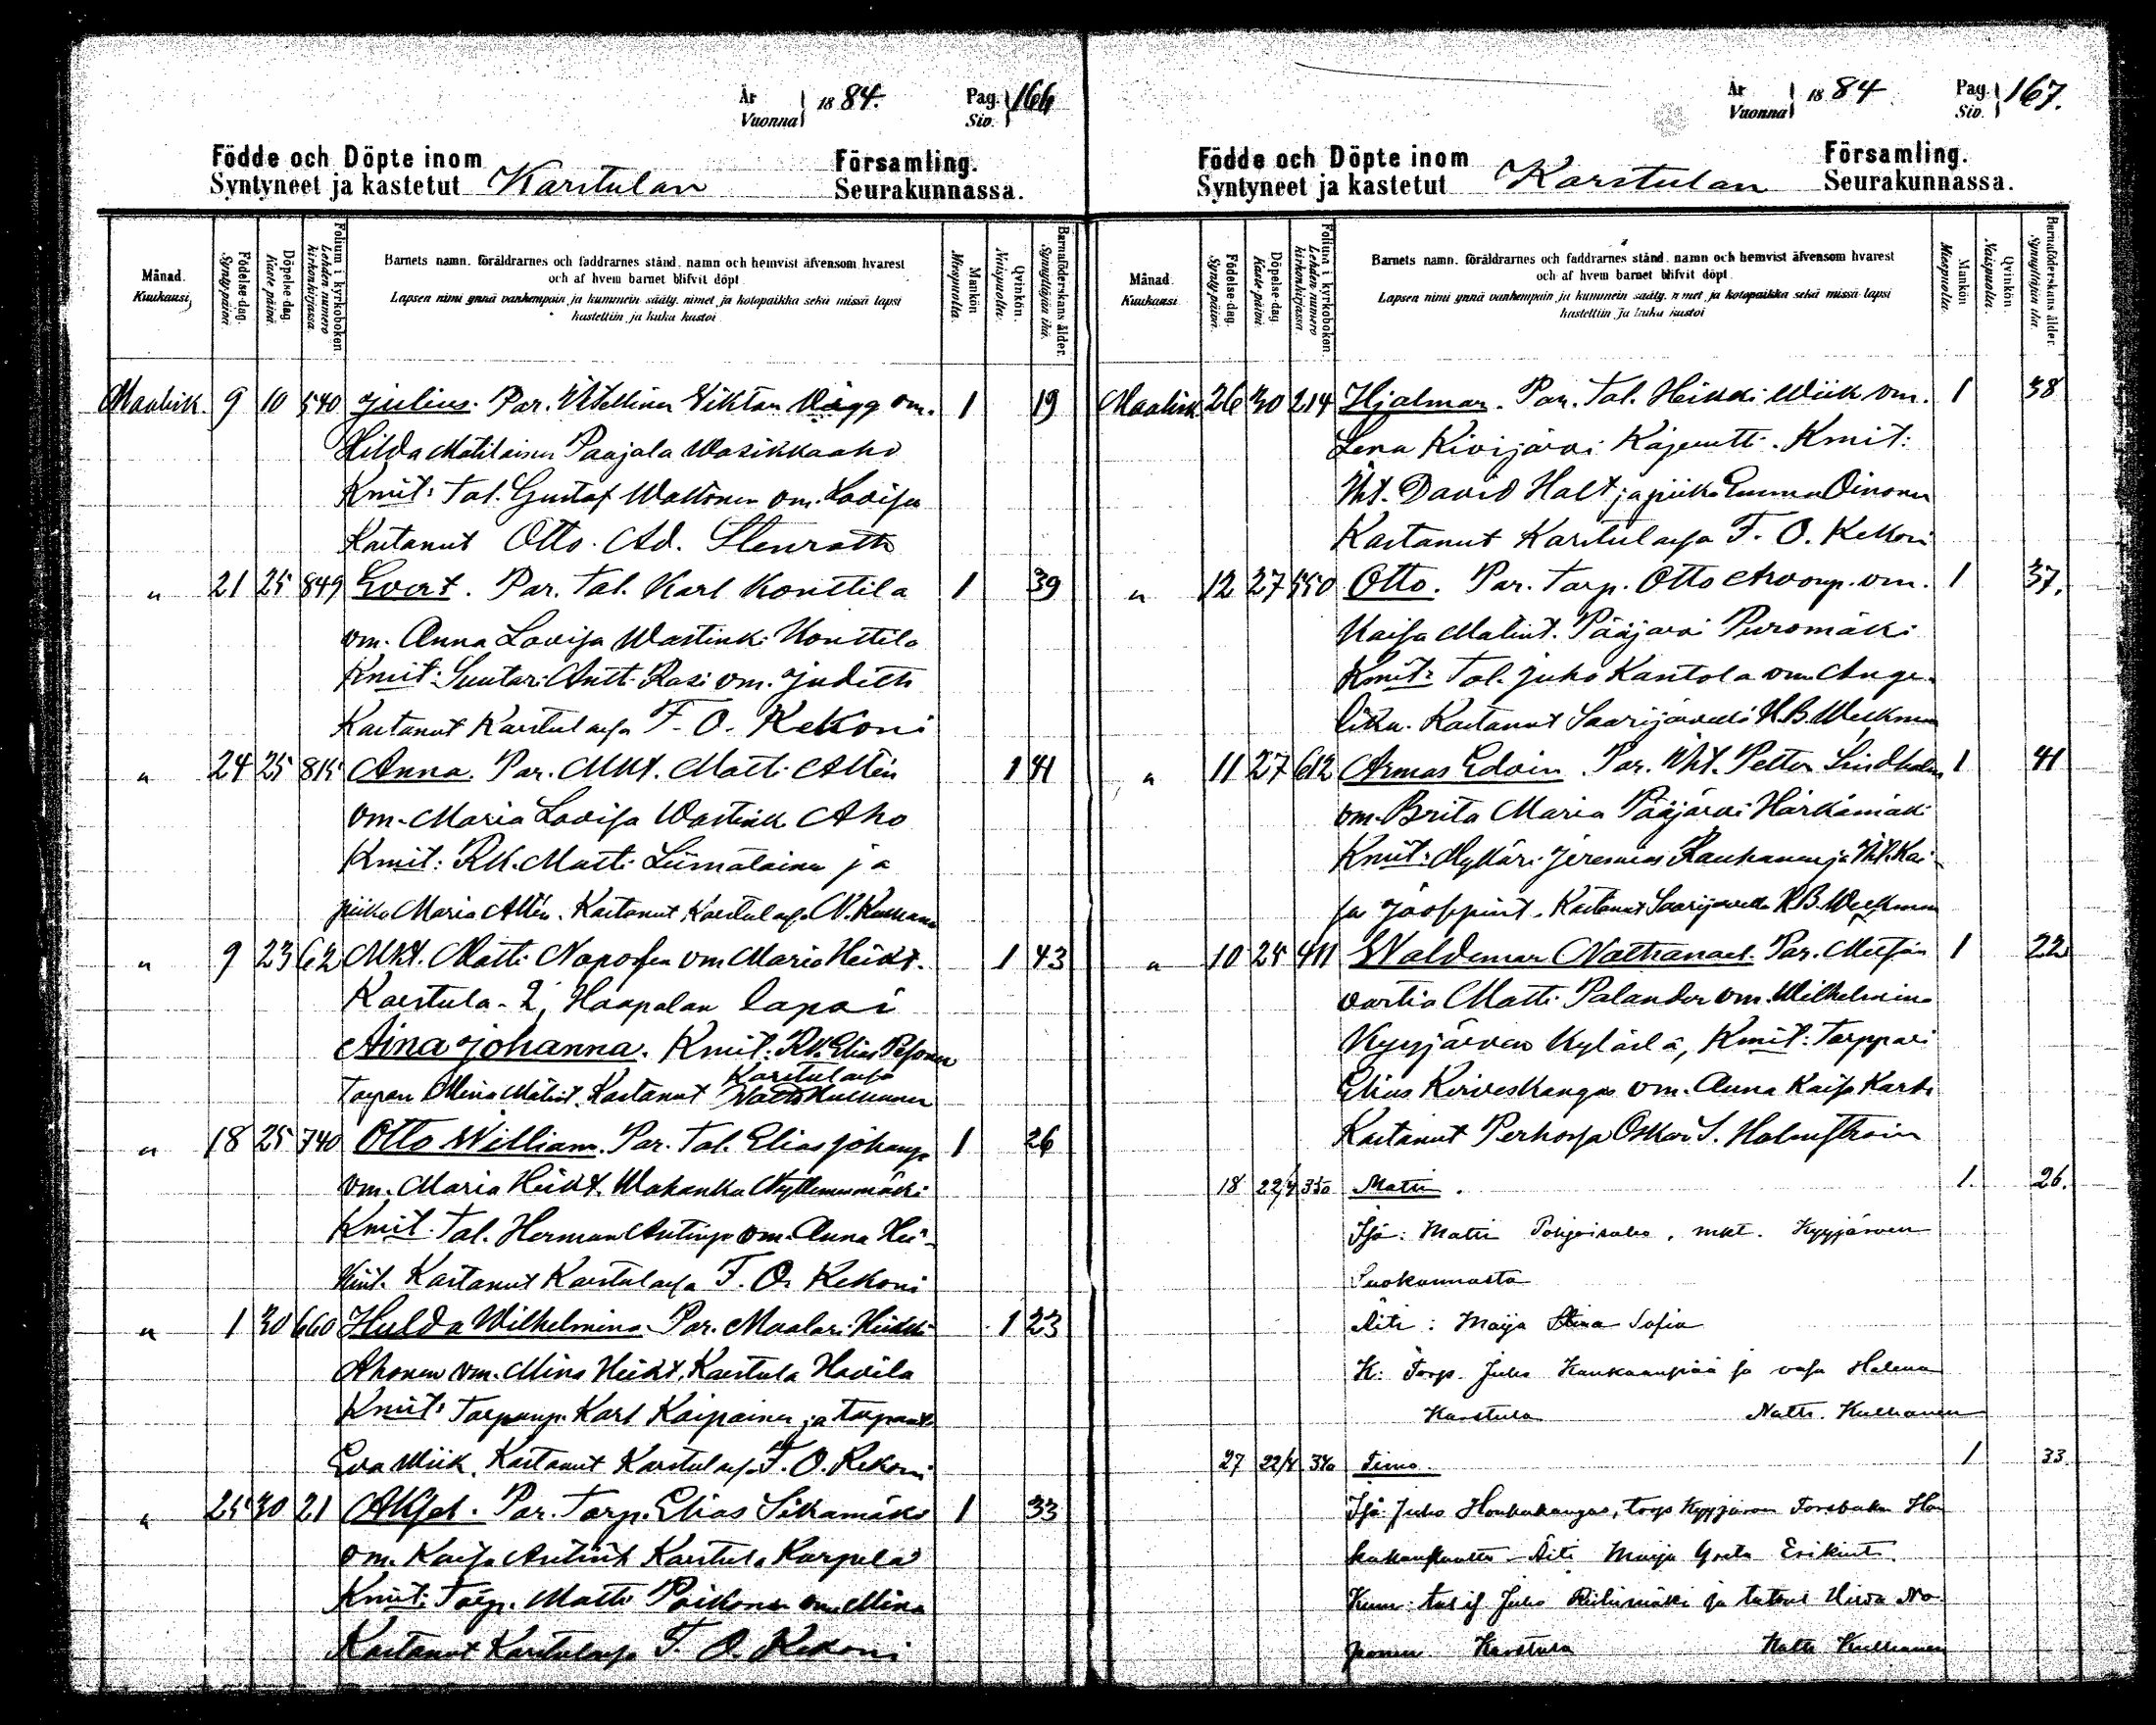 År
Vuonna 1884.
Pag.
Siv. 166
Födde och Döpte inom
Syntyneet ja kastetut Karstulan
Församling.
Seurakunnassa.
Månad.
Kuukausi,
Födelse-dag.
Synty päivä
Döpelse-dag.
Kaste päivä
Folium i kyrkoboken.
Lehden numero
kirkonkirjassa.
Barnets namn, föräldrarnes och faddrarnes stånd, namn och hemvist äfvensom hvarest
och af hvem barnet blifvit döpt.
Lapsen nimi ynnä vanhempain ja kummein sääty, nimet ja kotopaikka sekä missä lapsi
kastettiin ja kuka kastoi
Mankön
Miespuolia.
Qvinkön.
Naispuolia.
Barnaföderskans ålder.
Synnyttäjän ikä.
Maalisk. 9 10 540 Julius. Par. Viktor Vägg vm. 1 19
Hilda Matilainen Paajala Wasikkaaho
Kmit: Tal. Gustaf Wallönen vm. Lovisa
Kastanut Otto. Ad. Stenroth
" 21 25 849 Evert. Par. Tal. Karl Konttila 1 39
vm. Anna Lovisa Wastinki Konttila
Kmit: Suutari Antti Rasi vm. Judith
Kastanut Karstulassa F. O. Rekoni
" 24 25 815 Anna. Par. Mkt. Matti Allén 1 41
vm. Maria Lovisa Wastink. Aho
Kmit: Rk. Matti Liimalainen ja
piika Maria Allén. Kastanut Karstulassa N. Kulhanen
" 9 23 62 Mkt. Matti Naposen vm Maria Heikt. 1 43
Karstula 2, Haapalan lapsi
Aina Johanna. Kmit: Rk. Elias Pesonen
Karstulassa
Kastanut Natti Kulhanen
" 18 25 740 Otto William. Par. Tal. Elias Johansp. 1 26
vm. Maria Heikt. Wahanka Kyllönmäki
Kmit. Tal. Herman Antinp. vm. Anna Hei-
kint. Kastanut Karstulassa F. O. Rekoni
" 1 30 660 Hulda Wilhelmina. Par. Maalari Heikki 1 23
Ahonen vm. Mina Heikt. Karstula Havila
Kmit: Karl Kaipainen ja
Eva Wiik. Kastanut Karstulassa F. O. Rekoni
" 25 30 21 Aksel. Par. Torp. Elias Sikamäki 1 33
vm. Kaisa Antint. Karstula Kurpela
Kmit: Torp. Matti Poikonen vm. Mina
Kastanut Karstulassa F. O. Rekoni
År
Vuonna 1884
Pag.
Siv. 167.
Födde och Döpte inom
Syntyneet ja kastetut Karstulan
Församling.
Seurakunnassa.
Månad.
Kuukausi
Födelse-dag.
Synty päivä.
Döpelse-dag
Kaste päivä
Folium i kyrkoboken.
Lehden numero
kirkonkirjassa.
Barnets namn, föräldrarnes och faddrarnes stånd, namn och hemvist äfvensom hvarest
och af hvem barnet blifvit döpt.
Lapsen nimi ynnä vanhempain ja kummein sääty, nimet ja kotopaikka sekä missä lapsi
kastettiin ja kuka kastoi
Mankön
Miespuolia.
Qvinkön.
Naispuolia.
Barnaföderskans ålder.
Synnyttäjän ikä.
Maalisk. 26 30 214 Hjalmar. Par. Tal. Heikki Wiik vm. 1 38
Lena Kivijärvi Kmit:
David Halt ja piika Emma Oinonen
Kastanut Karstulassa F. O. Rekoni
" 12 27 550 Otto. Par. Torp. Otto Arvonp. vm. 1 37.
Kaisa Matint. Pääjärvi Puromäki
Kmit: Tal. Juho Kantola vm Ange-
lika. Kastanut Saarijärvellä K. B. Weckman
" 11 27 612 Armas Edvin. Par. Petter Lindholm 1 41
vm. Brita Maria Pääjärvi Härkämäki
Kmit: Jeremias Raukanen ja Kai-
sa Joosepint. Kastanut Saarijärvellä K. B. Weckman
" 10 25 411 Waldemar Nathanael. Par. Metsän 1 22
vartia Matti Palander vm. Wilhelmina
Kyyjärven kylästä, Kmit: Torppari
Elias Kirveskangas vm. Anna Kaisa Karst.
Kastanut Perhossa Oskar S. Holmström
18 22/4 350 Matti. 1. 26.
Isä: Matti Pohjoisaho, mkt. Kyyjärven
Suokannasta
Äiti: Maija Stina Sofia
K: Torp. Juho Kaukaanpää ja vaimo Helena
Karstula Natti. Kulhanen
27 22/4 340 Timo. 1 33
Isä Juho Honkakangas, torp Kyyjärven
Äiti Maija Greta Erikint.
Kum: Juho Riihimäki ja
Karstula Natti Kulhanen